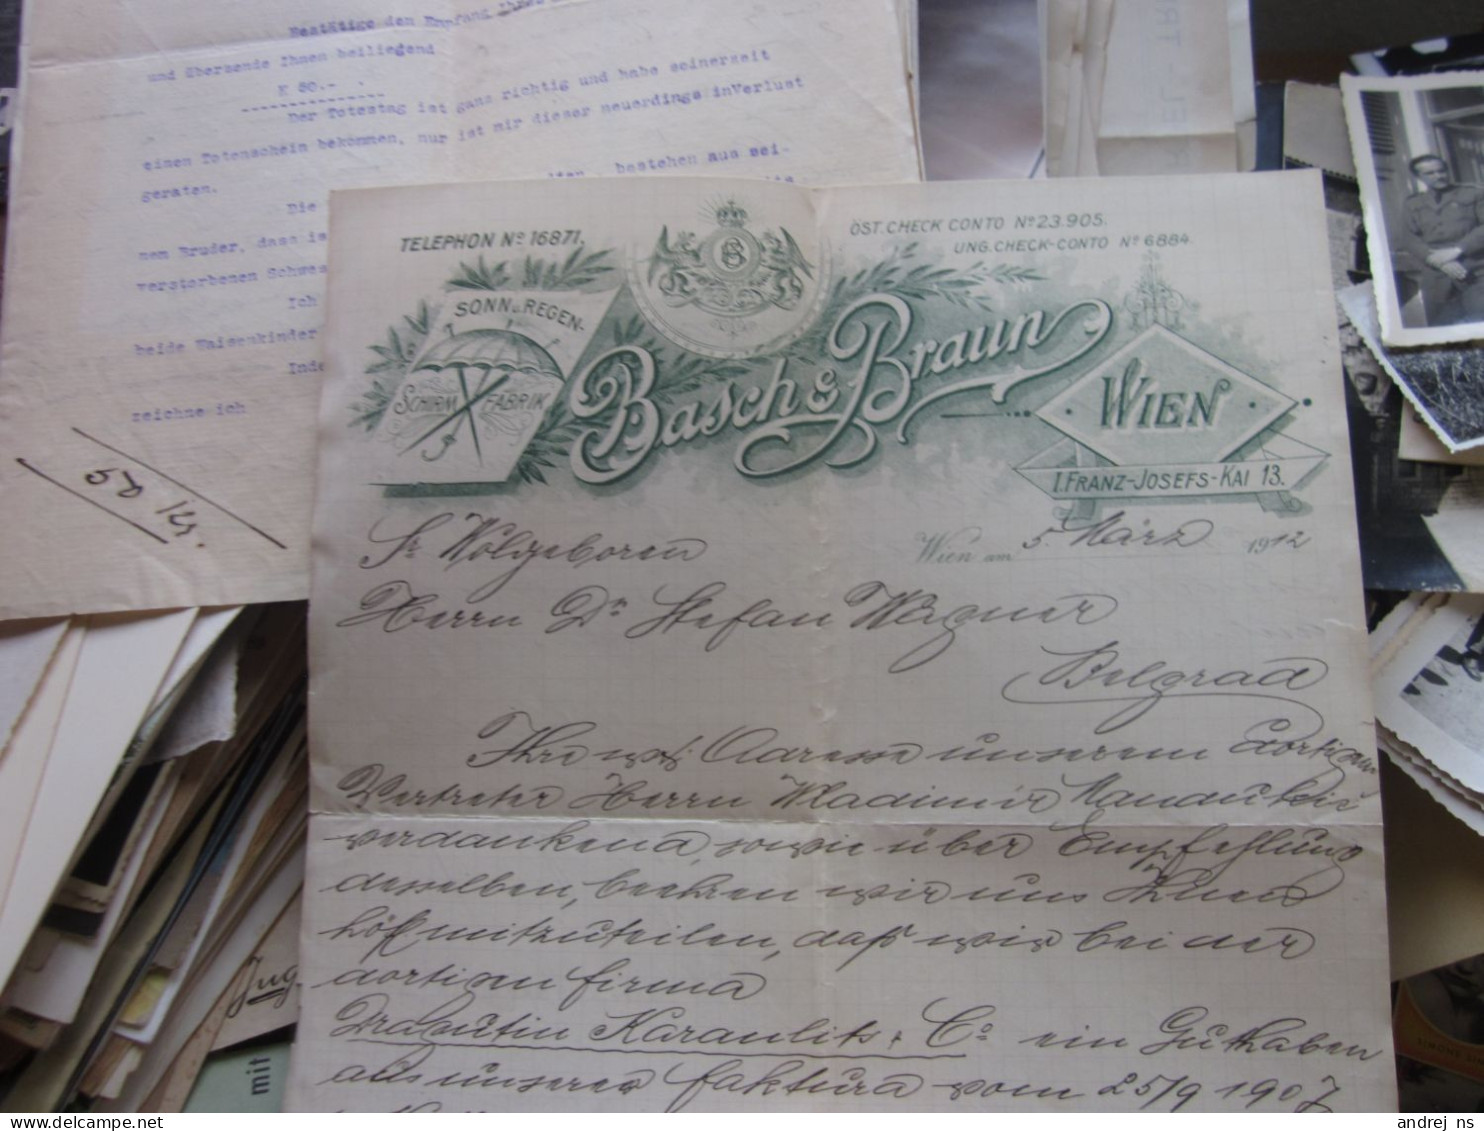 Bestätige den Empfang Ihres
und übersende Ihnen beiliegend
K 50.-
Der Totestag ist ganz richtig und habe seinerzeit
einen Totenschein bekommen, nur ist mir dieser neuerdings inVerlust
geraten.
Die bestehen aus sei-
nem Bruder, dass
verstorbenen Schwes
Ich
beide Waisenkinder
Inde
zeichne ich
50 Kr.
TELEPHON No 16871.
ÖST. CHECK CONTO No 23.905.
UNG. CHECK-CONTO No 6884.
SONN u. REGEN-
SCHIRM FABRIK
Basch & Braun
WIEN
I. FRANZ-JOSEFS-KAI 13.
Wien am 5. März 1912
Sr Wolgeboren
Herrn Dr Stefan Wagner
Belgrad
Ihre Adresse unserem dortigen
Vertreter Herrn Wladimir
verdankend, sowie über Empfehlung
desselben, beehren wir uns Ihnen
höfl mitzuteilen, daß wir bei der
dortigen firma
Dragutin Karaulits & Co ein Guthaben
als unserer faktura vom 25/9 1907
mit
andrej ns